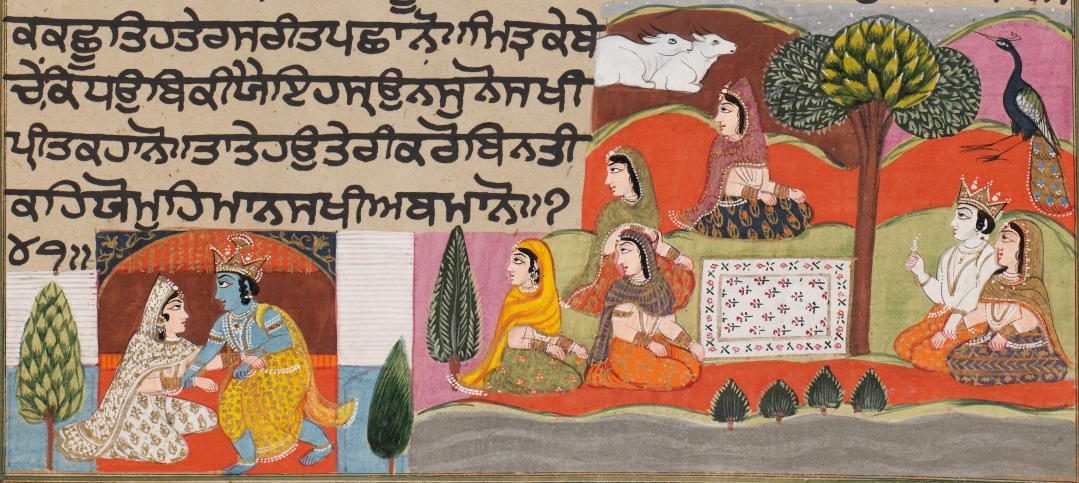 ਕਕਛੂਤਿਹਤੇਰਸਰੀਤਪਛਾਨੋ॥ਮਿਤ੍ਰਕੇਬੇ
ਚੇਕਿਧਉਬਿਕੀਯੈਇਹਸ੍ਉਨਸੁਨੋਸਖੀ
ਪ੍ਰੀਤਕਹਾਨੋ॥ਤਾਤੇਹਉਤੇਰੀਕਰੋਬਿਨਤੀ
ਕਹਿਯੋਮੁਹਿਮਾਨਸਖੀਅਬਮਾਨੋ॥੭
੪੧॥